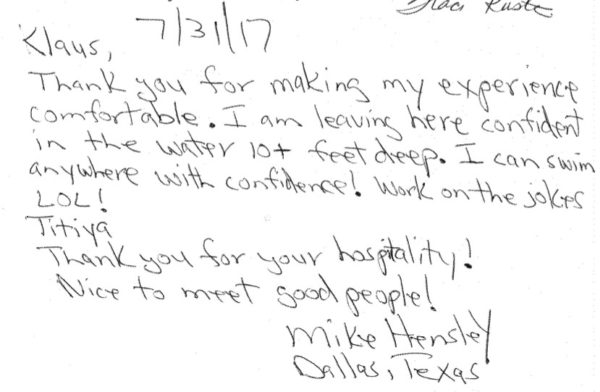 7/31/17
Klaus,
Thank you for making my experience
comfortable. I am leaving here confident
in the water 10+ feet deep. I can swim
anywhere with confidence! Work on the jokes
LOL!
Titiya
Thank you for your hospitality!
Nice to meet good people!
Mike Hensley
Dallas, Texas